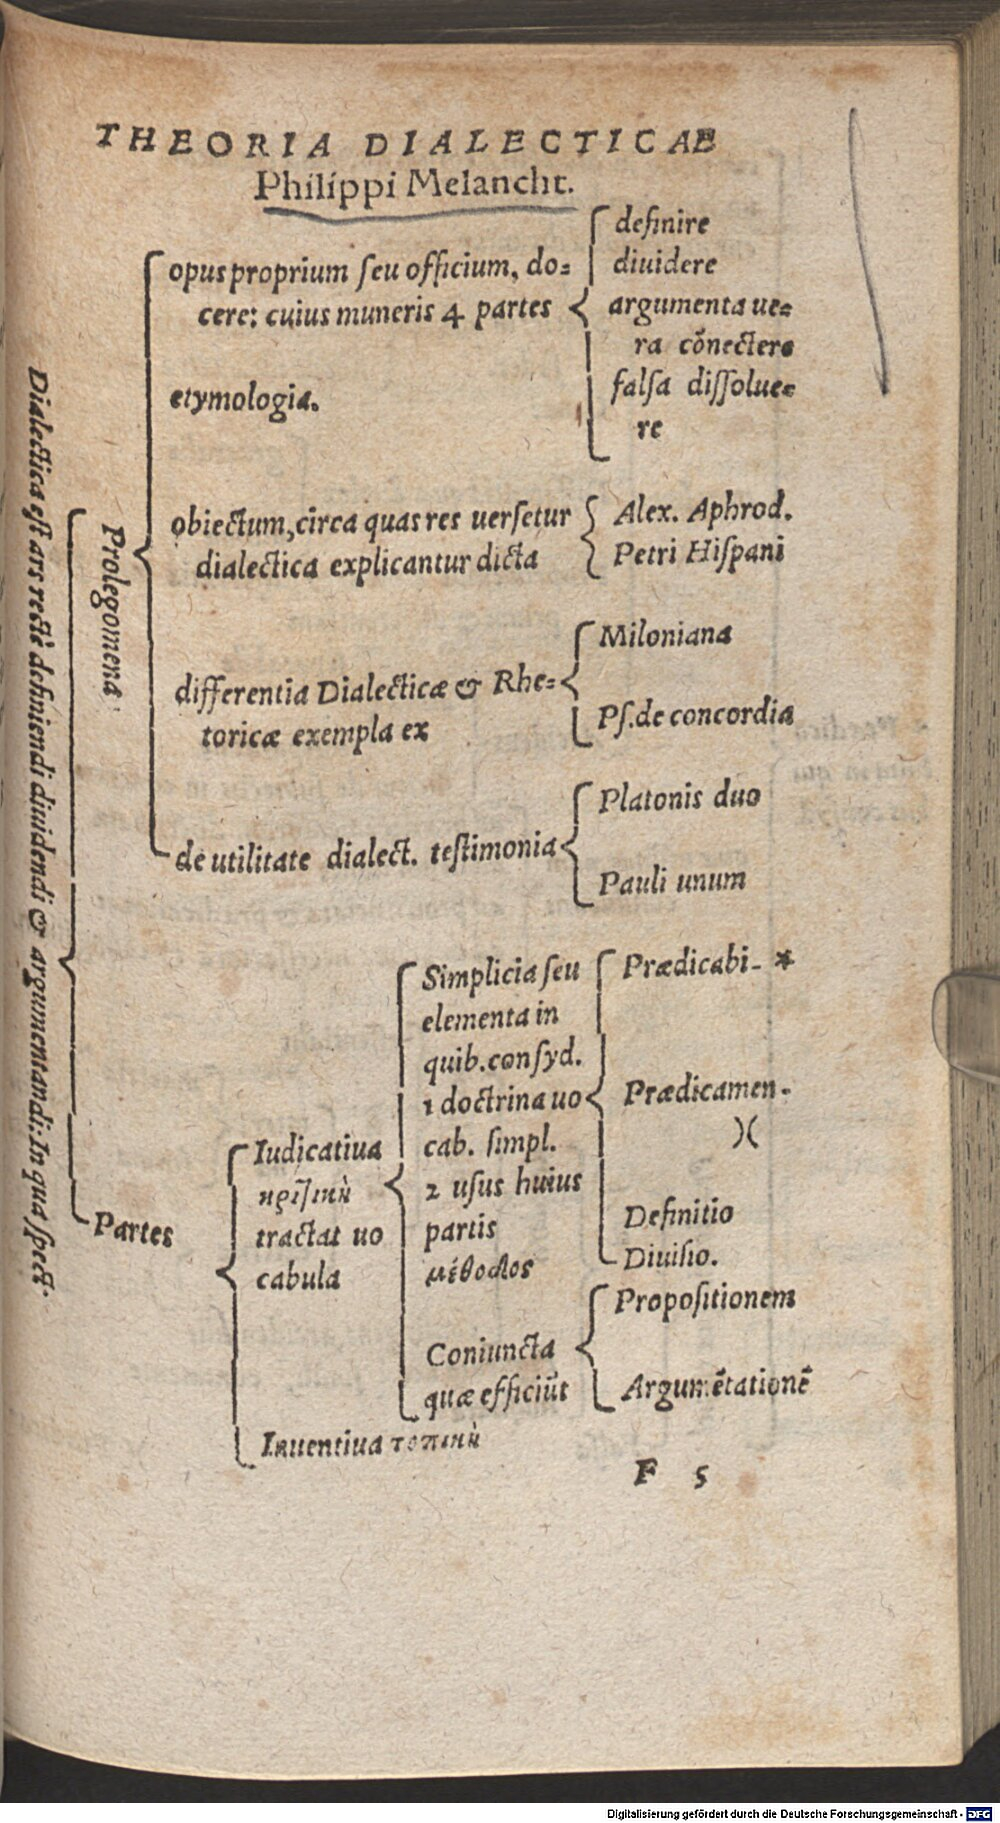 THEORIA DIALECTICAE
Philippi Melancht.
Dialectica est ars rectè definiendi diuidendi & argumentandi: In qua spect.
Prolegomena
opus proprium seu officium, do=
cere: cuius muneris 4 partes
definire
diuidere
argumenta ue=
ra cōnectere
falsa dissolue=
re
etymologia.
obiectum, circa quas res uersetur
dialectica explicantur dicta
Alex. Aphrod.
Petri Hispani
differentia Dialecticæ & Rhe=
toricæ exempla ex
Miloniana
Ps. de concordia
de utilitate dialect. testimonia
Platonis duo
Pauli unum
Partes
Iudicatiua
κριτικὴ
tractat uo
cabula
Simplicia seu
elementa in
quib. consyd.
1 doctrina uo
cab. simpl.
2 usus huius
partis
μέθοδος
Prædicabi- *
Prædicamen-
)(
Definitio
Diuisio.
Coniuncta
quæ efficiūt
Propositionem
Argumētationē
Inuentiua τοπικὴ
F 5
Digitalisierung gefördert durch die Deutsche Forschungsgemeinschaft - DFG